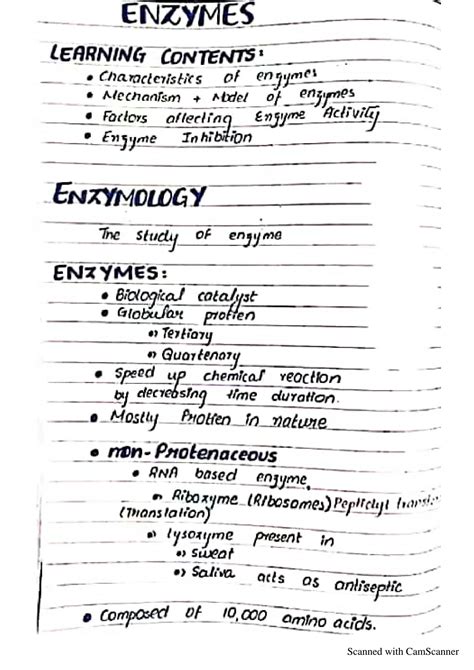 ENZYMES
LEARNING CONTENTS:
• Characteristics of enzymes
• Mechanism + Model of enzymes
• Factors affecting Enzyme Activity
• Enzyme Inhibition
ENZYMOLOGY
The study of enzyme
ENZYMES:
• Biological catalyst
• Globular protien
Tertiary
Quartenary
• Speed up chemical reaction
by decreasing time duration.
• Mostly Protien in nature
• non-Protenaceous
• RNA based enzyme
Ribozyme (Ribosomes) Peptidyl
(Translation)
lysozyme present in
Sweat
Saliva acts as antiseptic
• Composed of 10,000 amino acids.
Scanned with CamScanner